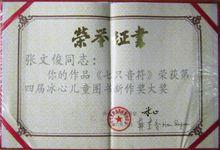 荣誉证书
张文俊同志：
你的作品《七只音符》荣获第
四届冰心儿童图书新作奖大奖